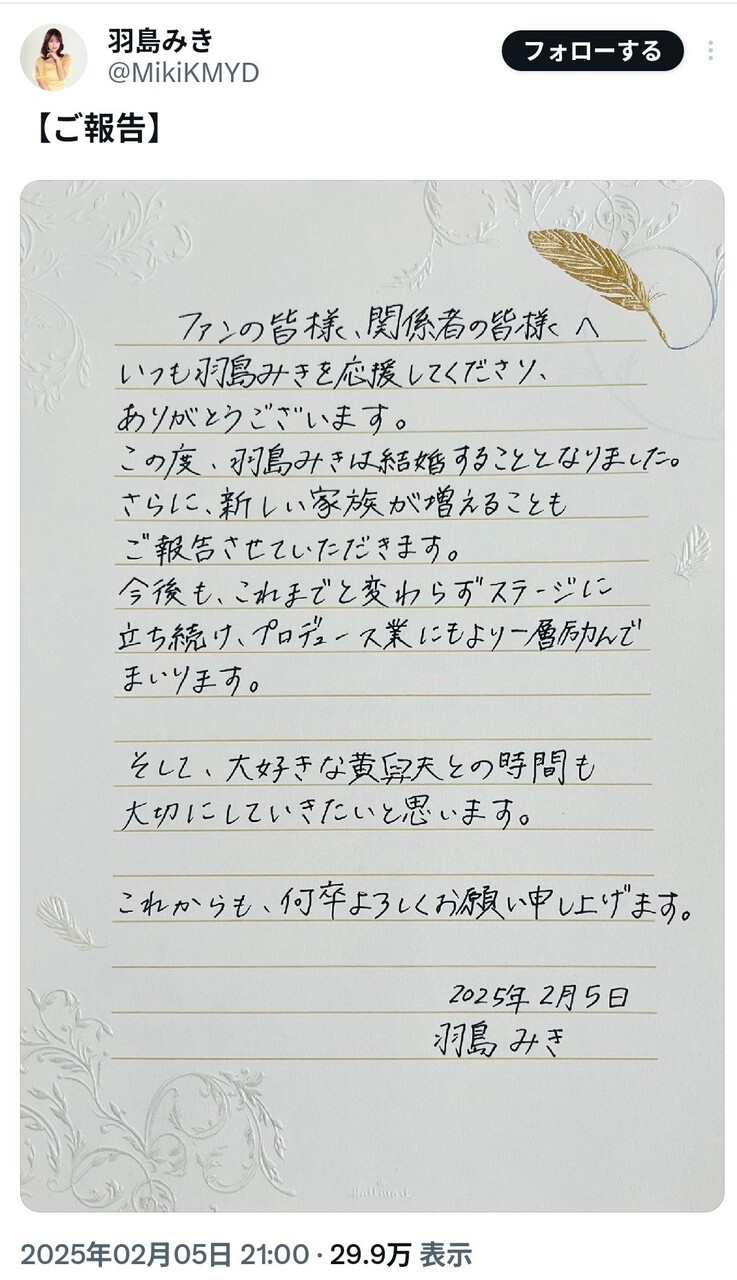 羽島みき
@MikiKMYD
フォローする
【ご報告】
ファンの皆様、関係者の皆様へ
いつも羽島みきを応援してくださり、
ありがとうございます。
この度、羽島みきは結婚することとなりました。
さらに、新しい家族が増えることも
ご報告させていただきます。
今後も、これまでと変わらずステージに
立ち続け、プロデュース業にもより一層励んで
まいります。
そして、大好きな黄昇天との時間も
大切にしていきたいと思います。
これからも、何卒よろしくお願い申し上げます。
2025年2月5日
羽島みき
Hallmark
2025年02月05日 21:00 · 29.9万 表示